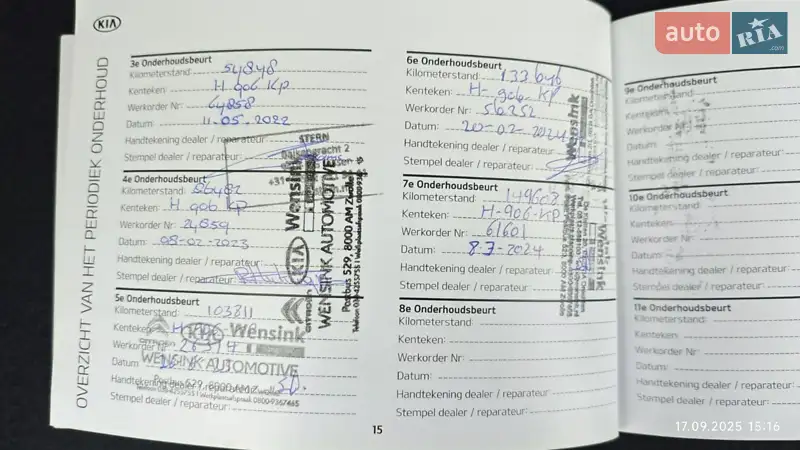 KIA
OVERZICHT VAN HET PERIODIEK ONDERHOUD
3e Onderhoudsbeurt
Kilometerstand: 54848
Kenteken: H 906 KP
Werkorder Nr: 64858
Datum: 11.05.2022
Handtekening dealer / reparateur:
Stempel dealer / reparateur:
STERN
4e Onderhoudsbeurt
Kilometerstand:
Kenteken: H 906 KP
Werkorder Nr: 24859
Datum: 08-02-2023
Handtekening dealer / reparateur:
Stempel dealer / reparateur:
Wensink
KIA
CITROËN
WENSINK AUTOMOTIVE
Postbus 529, 8000 AM Zwolle
5e Onderhoudsbeurt
Kilometerstand: 103811
Kenteken: H-906
Werkorder Nr:
Datum
Handtekening dealer / reparateur:
Stempel dealer / reparateur:
KIA Wensink
WENSINK AUTOMOTIVE
Postbus 529, 8000 AM Zwolle
6e Onderhoudsbeurt
Kilometerstand: 133646
Kenteken: H-906-KP
Werkorder Nr: 56252
Datum: 20-02-2024
Handtekening dealer / reparateur:
Stempel dealer / reparateur:
Wensink
7e Onderhoudsbeurt
Kilometerstand: 149608
Kenteken: H-906-KP
Werkorder Nr: 61601
Datum: 8-7-2024
Handtekening dealer / reparateur:
Stempel dealer / reparateur:
Wensink
8e Onderhoudsbeurt
Kilometerstand:
Kenteken:
Werkorder Nr:
Datum:
Handtekening dealer / reparateur:
Stempel dealer / reparateur:
15
9e Onderhoudsbeurt
Kilometerstand:
Kenteken:
Werkorder Nr:
Datum:
Handtekening dealer / reparateur:
Stempel dealer / reparateur:
10e Onderhoudsbeurt
Kilometerstand:
Kenteken:
Werkorder Nr:
Datum:
Handtekening dealer / reparateur:
Stempel dealer / reparateur:
11e Onderhoudsbeurt
Kilometerstand:
Kenteken:
Werkorder Nr:
Datum:
Handtekening dealer / reparateur:
Stempel dealer / reparateur:
auto RIA .com
17.09.2025 15:16